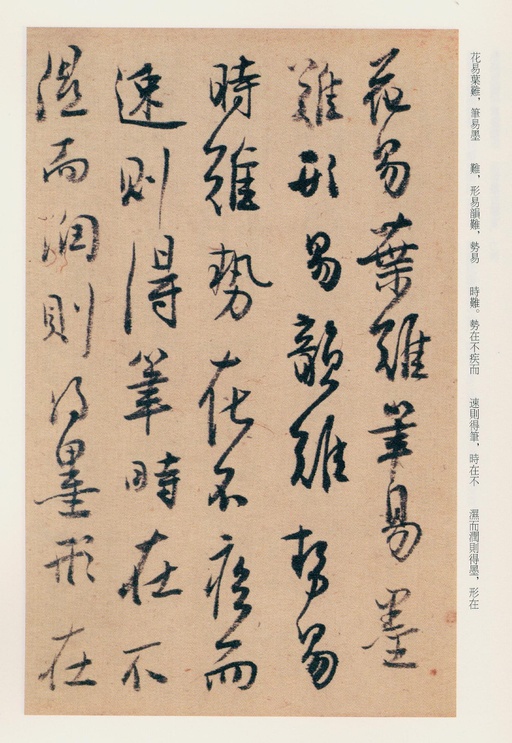 花易葉難筆易墨
難形易韻難勢易
時難勢在不疾而
速則得筆時在不
濕而潤則得墨形在
花易葉難，筆易墨
難，形易韻難，勢易
時難。勢在不疾而
速則得筆，時在不
濕而潤則得墨，形在